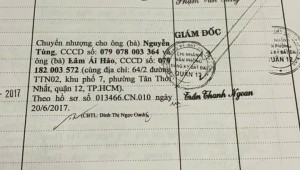 GIÁM ĐỐC
Chuyển nhượng cho ông (bà) Nguyễn
Tùng, CCCD số: 079 078 003 364 và
ông (bà) Lâm Ái Hảo, CCCD số: 079
182 003 572 (cùng địa chỉ: 64/2 đường
TTN02, khu phố 7, phường Tân Thới
Nhất, quận 12, TP.HCM).
Theo hồ sơ số 013466.CN.010 ngày
20/6/2017.
(CBTL: Đinh Thị Ngọc Oanh)
- 2017
CHI NHÁNH
VĂN PHÒNG
ĐĂNG KÝ ĐẤT ĐAI
QUẬN 12
Trần Thanh Ngoan